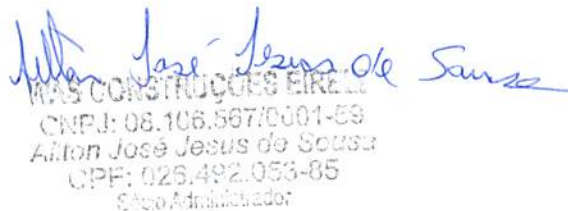 Ailton José Jesus de Sousa
WAS CONSTRUÇÕES EIRELI
CNPJ: 06.106.567/0001-59
Ailton José Jesus de Sousa
CPF: 026.492.053-85
Sócio Administrador